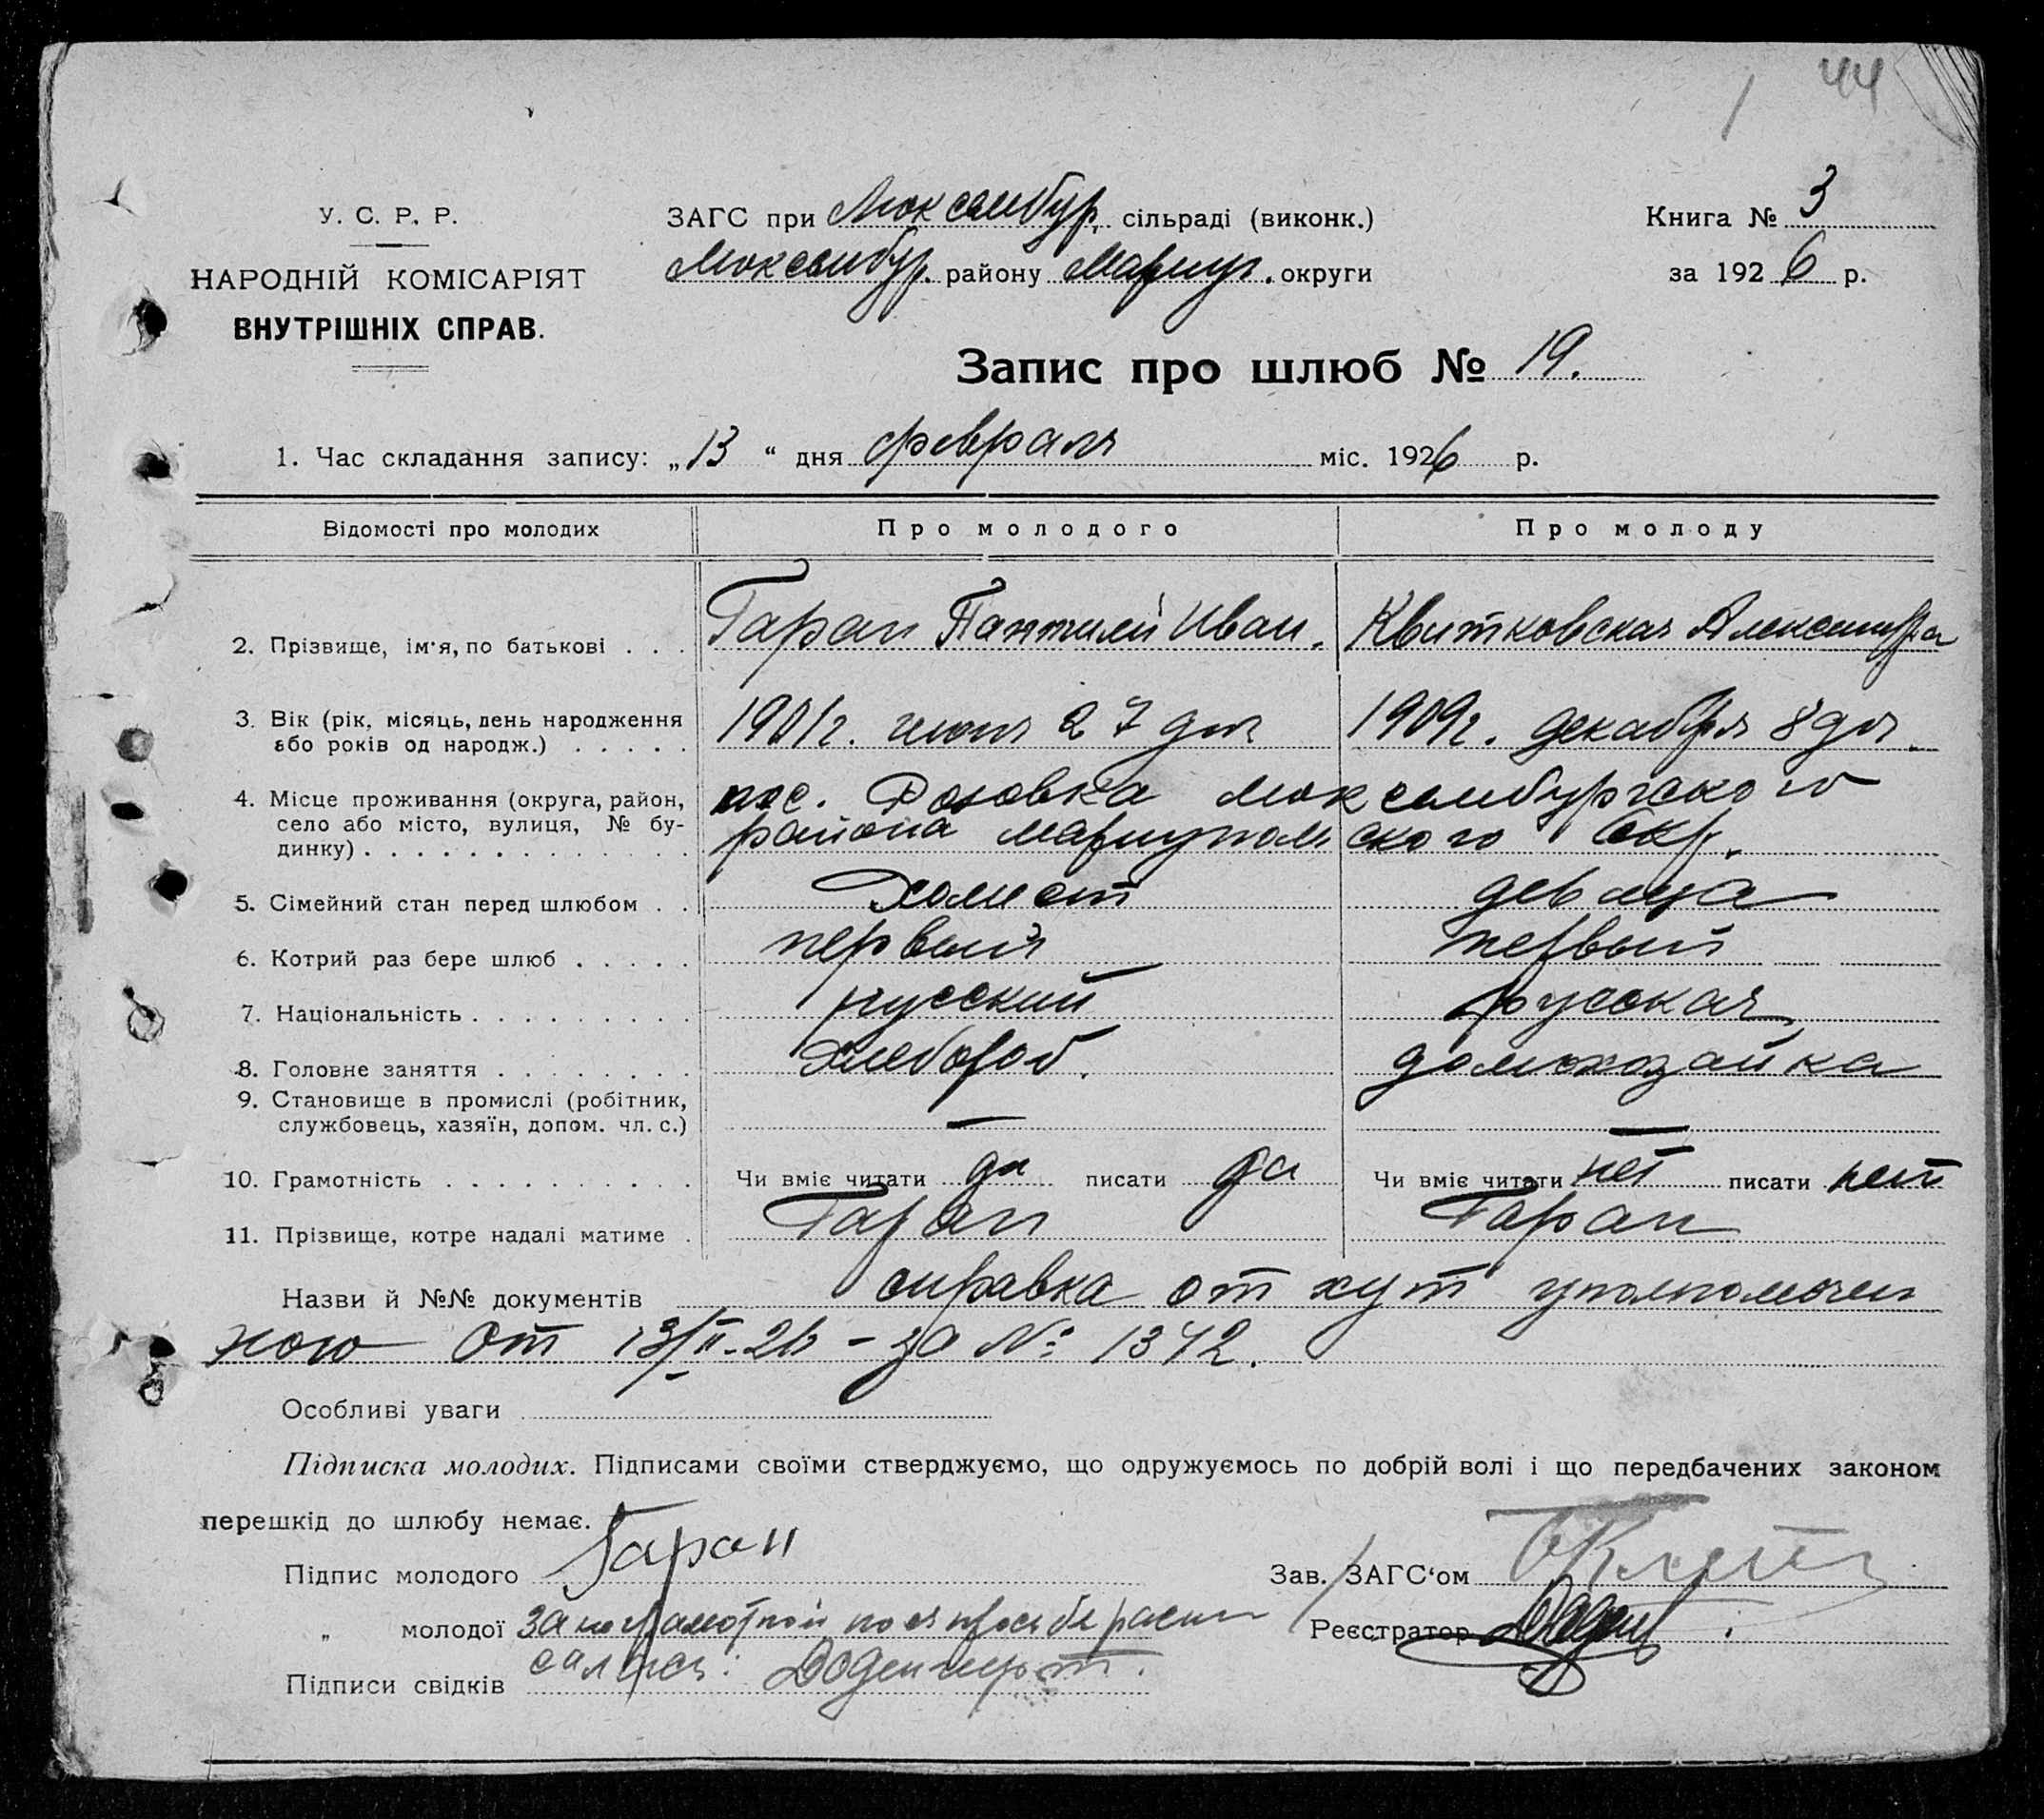 44
У. С. Р. Р.
НАРОДНІЙ КОМІСАРІЯТ
ВНУТРІШНІХ СПРАВ.
ЗАГС при Люксембур. сільраді (виконк.)
Люксембур. району Мариуп. округи
Книга № 3
за 1926 р.
Запис про шлюб № 19.
1. Час складання запису: „13“ дня февраля міс. 1926 р.
Відомості про молодих Про молодого Про молоду
2. Прізвище, ім'я, по батькові . . . Гаран Пантилей Иван. Квитковская Александра
3. Вік (рік, місяць, день народження
або років од народж.) . . . . . 1901г. июня 27 дня 1909г. декабря 8 дня
4. Місце проживання (округа, район, пос. Розовка Люксембургского
село або місто, вулиця, № бу- района Мариупольского Окр.
динку) . . . . . . . . . . . . . .
5. Сімейний стан перед шлюбом . . холост девица
6. Котрий раз бере шлюб . . . . . первый первый
7. Національність . . . . . . . . . русский русская
8. Головне заняття . . . . . . . . хлебороб. домохозайка
9. Становище в промислі (робітник,
службовець, хазяїн, допом. чл. с.) — —
10. Грамотність . . . . . . . . . . Чи вміє читати да писати да Чи вміє читати нет писати нет
11. Прізвище, котре надалі матиме . Гаран Гаран
Назви й №№ документів справка от хут уполномочен
ного от 13/II-26 - за №: 1342.
Особливі уваги
Підписка молодих. Підписами своїми стверджуємо, що одружуємось по добрій волі і що передбачених законом
перешкід до шлюбу немає.
Підпис молодого Гаран
Зав. ЗАГС‘ом
„ молодої За неграмотной по ея просьбе распи
Реєстратор
сался:
Підписи свідків